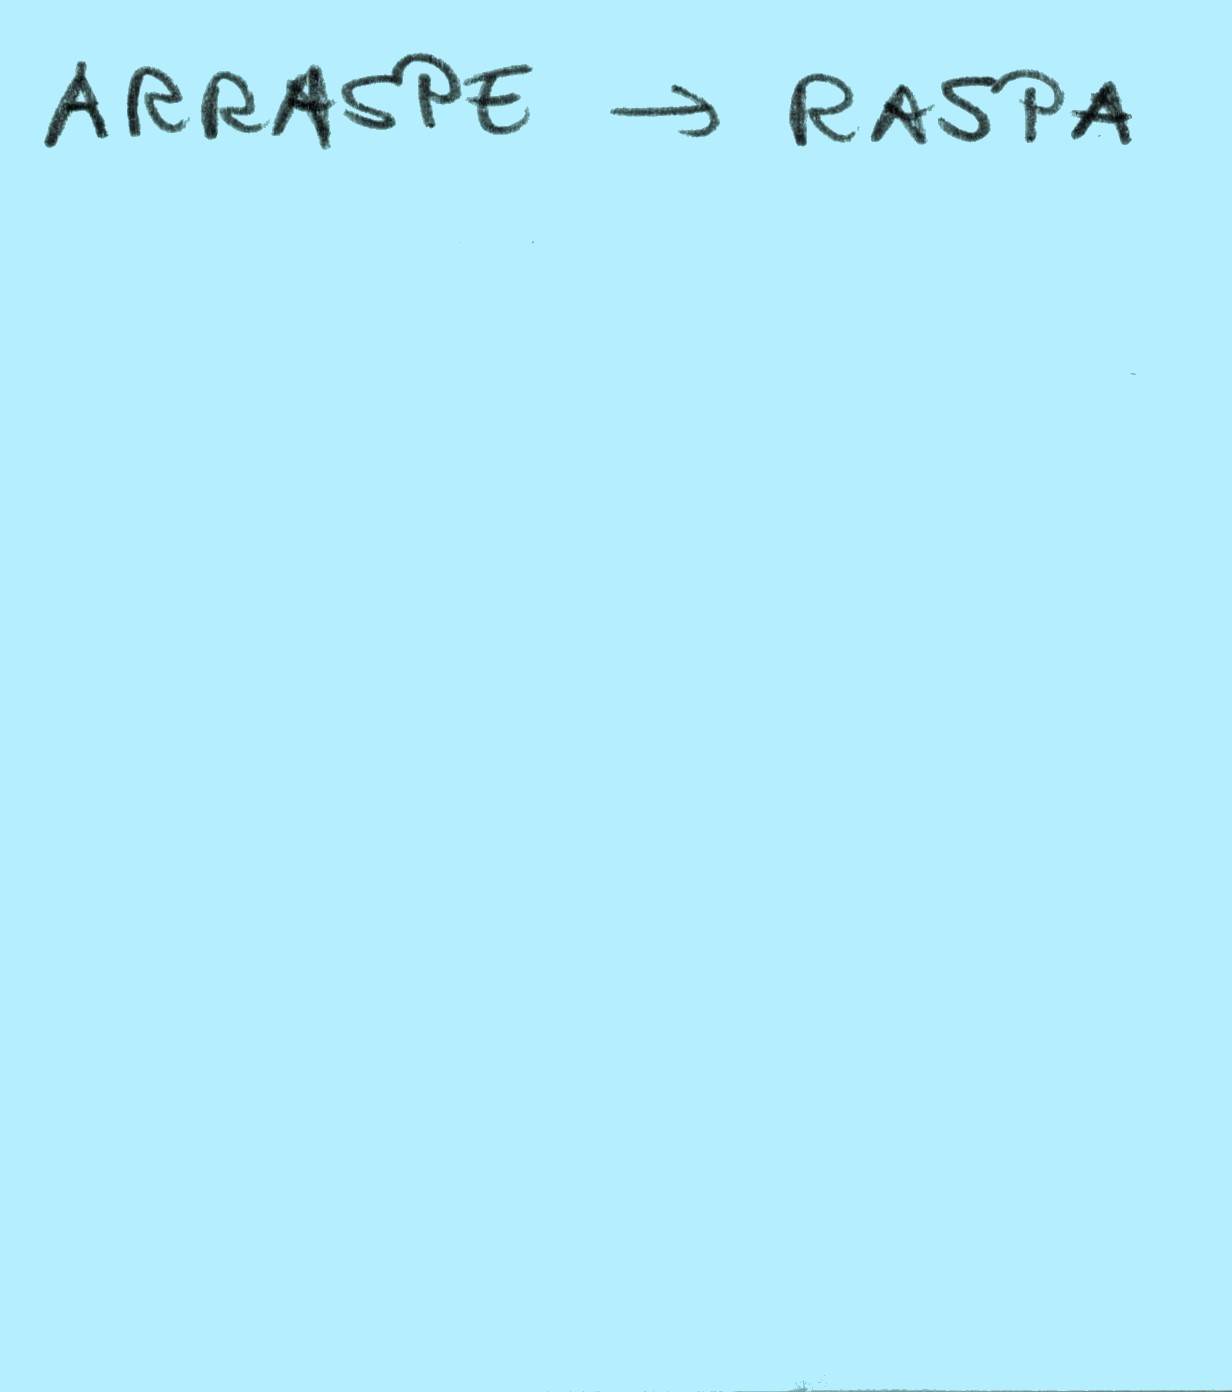 ARRASPE → RASPA